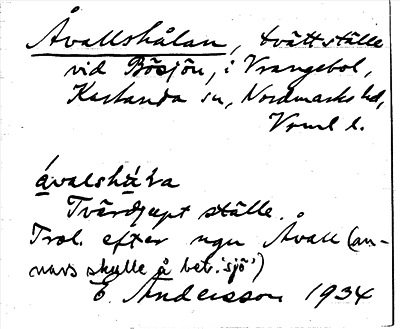 Åvallshålan, tvättställe
vid Bösjön, i Vrangebol,
Karlanda sn, Nordmarks hd,
Vrml l.
åvalshå̀la
Tvärdjupt ställe.
Trol. efter ngn Åvall (an-
nars skulle å bet. 'sjö')
E. Andersson 1934